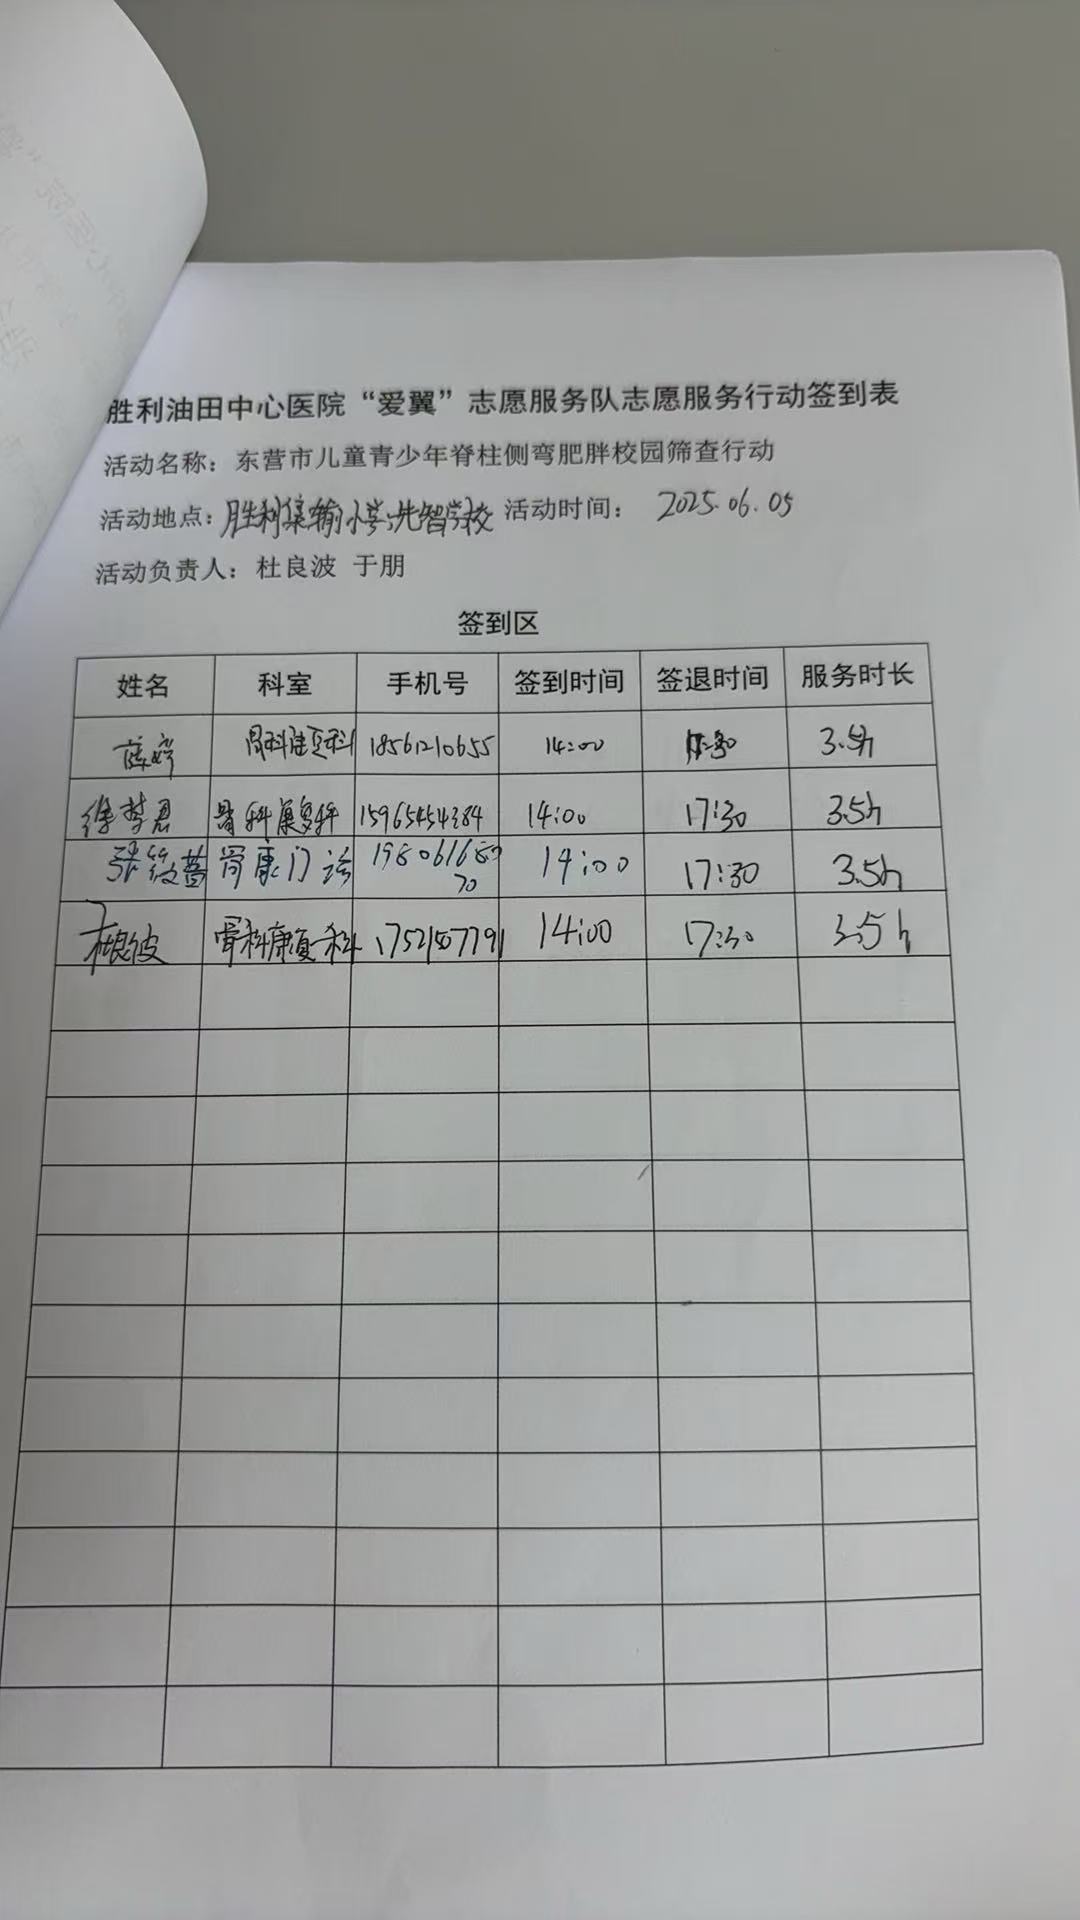 胜利油田中心医院“爱翼”志愿服务队志愿服务行动签到表
活动名称：东营市儿童青少年脊柱侧弯肥胖校园筛查行动
活动地点：胜利集输小学、先智学校 活动时间： 2025.06.05
活动负责人：杜良波 于朋
签到区
姓名 科室 手机号 签到时间 签退时间 服务时长
薛婷 18561210655 14:00 17:30 3.5h
徐梦君 骨科康复科 15965454384 14:00 17:30 3.5h
张筱萱 骨康门诊 19806168070 14:00 17:30 3.5h
杜良波 骨科康复一科 17521507791 14:00 17:30 3.5h